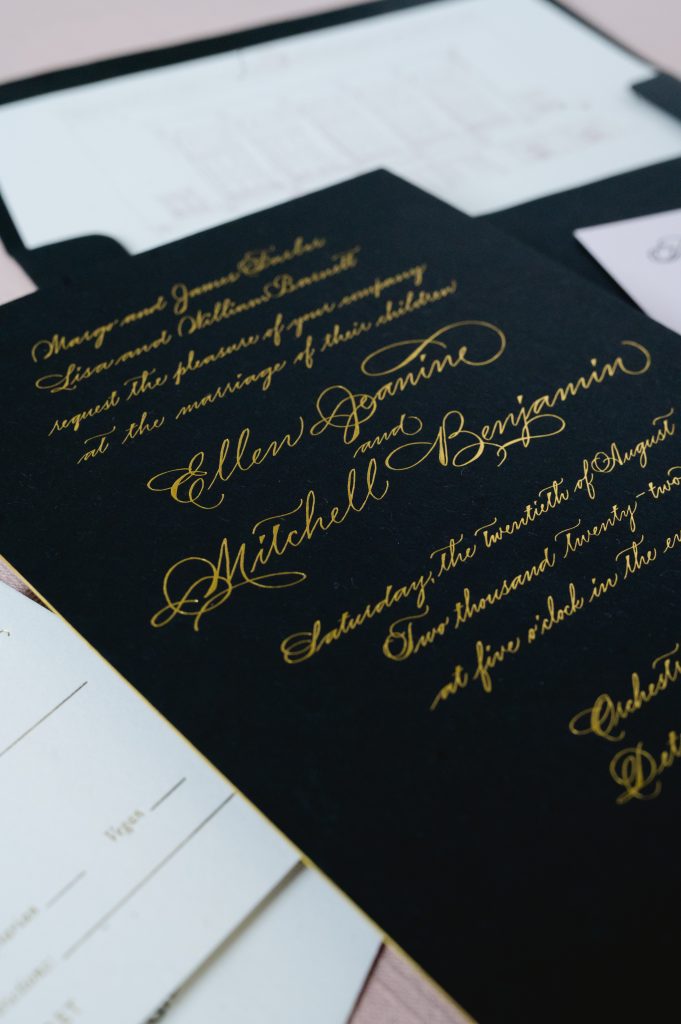 Margo and James Darber
Lisa and William Barnett
request the pleasure of your company
at the marriage of their children
Ellen Jeanine
and
Mitchell Benjamin
Saturday, the twentieth of August
Two thousand twenty-two
at five o'clock in the
Vegan